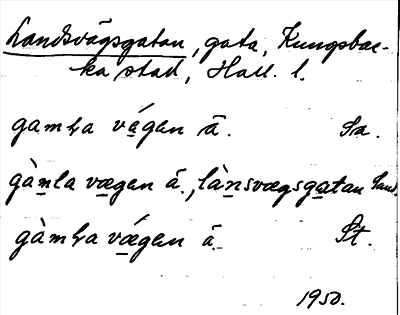 Landsvägsgatan, gata, Kungsbac-
ka stad, Hall. l.
gamḷa vágen ā. Sa.
gànla vægen á., lànsvægsgatan Sand.
gàmḷa vǽgen ā. St.
1950.